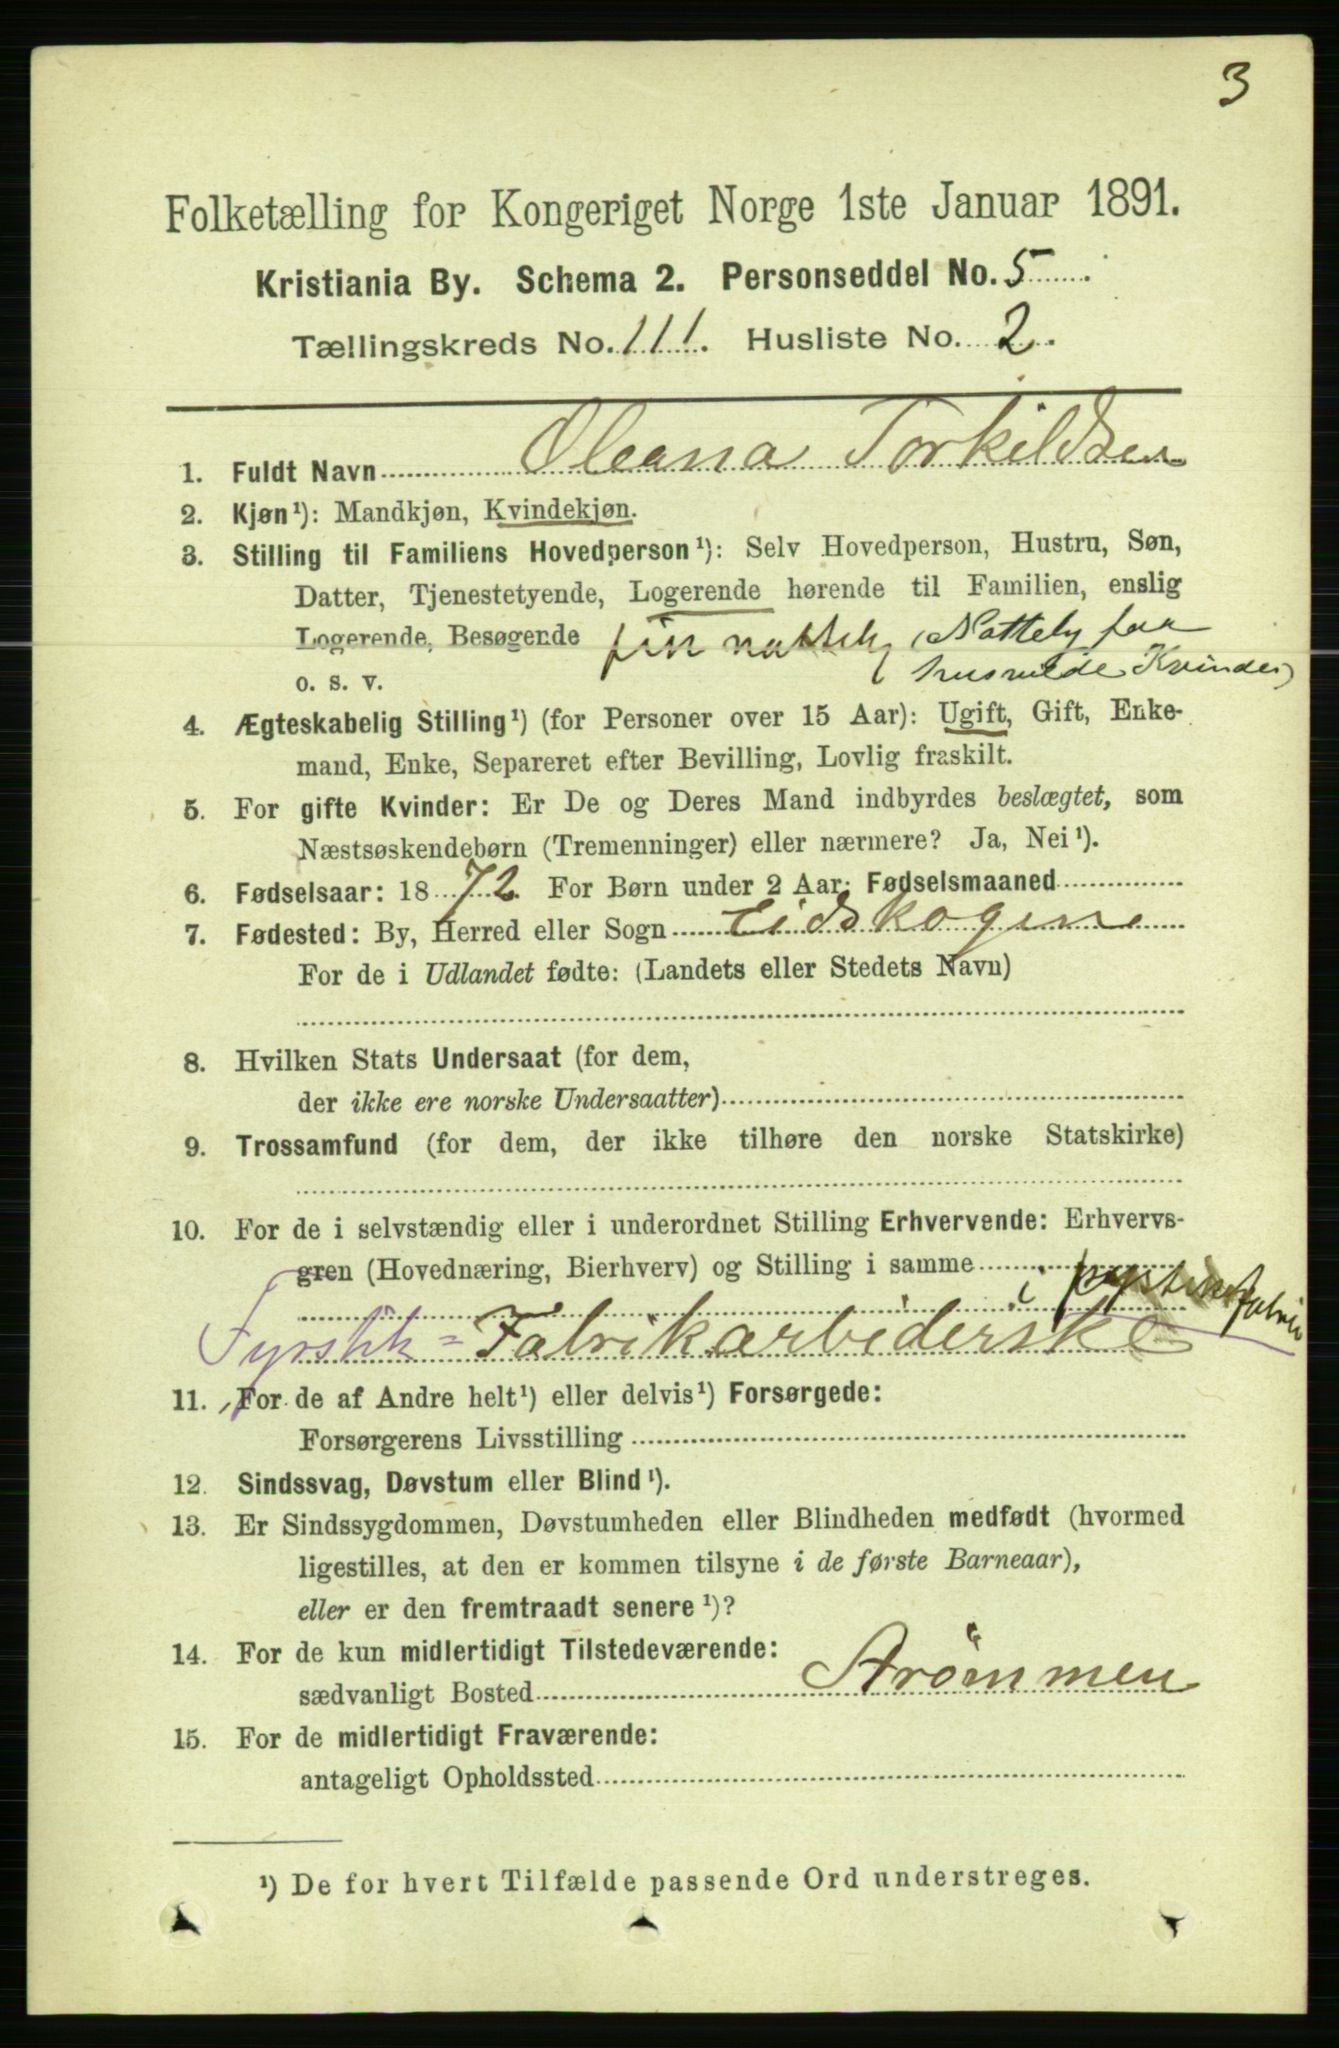 3
Folketælling for Kongeriget Norge 1ste Januar 1891.
Kristiania By. Schema 2. Personseddel No. 5
Tællingskreds No. 111. Husliste No. 2.
1. Fuldt Navn Oleana Torkildsen
2. Kjøn¹): Mandkjøn, Kvindekjøn.
3. Stilling til Familiens Hovedperson¹): Selv Hovedperson, Hustru, Søn,
Datter, Tjenestetyende, Logerende hørende til Familien, enslig
Logerende, Besøgende (Nattely faa
o. s. v. Kvinder)
4. Ægteskabelig Stilling¹) (for Personer over 15 Aar): Ugift, Gift, Enke-
mand, Enke, Separeret efter Bevilling, Lovlig fraskilt.
5. For gifte Kvinder: Er De og Deres Mand indbyrdes beslægtet, som
Næstsøskendebørn (Tremenninger) eller nærmere? Ja, Nei¹).
6. Fødselsaar: 1872 For Børn under 2 Aar: Fødselsmaaned
7. Fødested: By, Herred eller Sogn Eidskogene
For de i Udlandet fødte: (Landets eller Stedets Navn)
8. Hvilken Stats Undersaat (for dem,
der ikke ere norske Undersaatter)
9. Trossamfund (for dem, der ikke tilhøre den norske Statskirke)
10. For de i selvstændig eller i underordnet Stilling Erhvervende: Erhvervs-
gren (Hovednæring, Bierhverv) og Stilling i samme
i fabrik
Fyrstik=Fabrikarbeiderske
11. For de af Andre helt¹) eller delvis¹) Forsørgede:
Forsørgerens Livsstilling
12. Sindssvag, Døvstum eller Blind¹).
13. Er Sindssygdommen, Døvstumheden eller Blindheden medfødt (hvormed
ligestilles, at den er kommen tilsyne i de første Barneaar),
eller er den fremtraadt senere¹)?
14. For de kun midlertidigt Tilstedeværende:
sædvanligt Bosted Strømmen
15. For de midlertidigt Fraværende:
antageligt Opholdssted
¹) De for hvert Tilfælde passende Ord understreges.